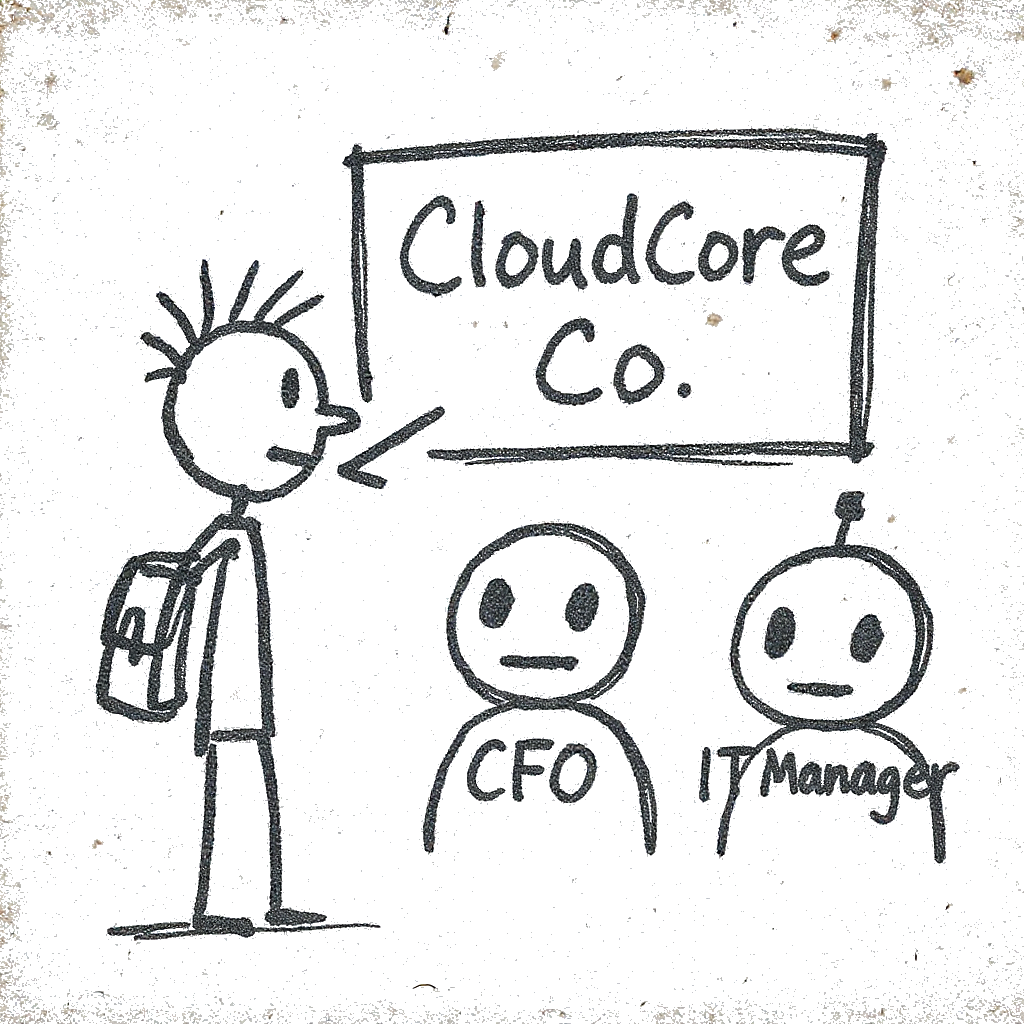 CloudCore
Co.
CFO
IT Manager